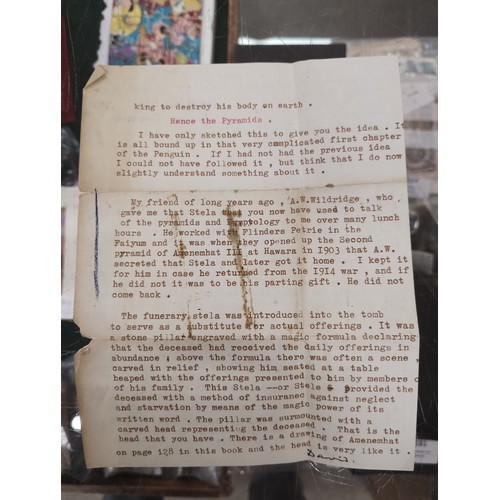 king to destroy his body on earth .
Hence the Pyramids .
I have only sketched this to give you the idea . It
is all bound up in that very complicated first chapter
of the Penguin . If I had not had the previous idea
I could not have followed it , but think that I do now
slightly understand something about it .
My friend of long years ago , A.W.Wildridge , who
gave me that Stela that you now have used to talk
of the pyramids and Egyptology to me over many lunch
hours . He worked with Flinders Petrie in the
Faiyum and it was when they opened up the Second
pyramid of Amenemhat III at Hawara in 1903 that A.W.
secreted that Stela and later got it home . I kept it
for him in case he returned from the 1914 war , and if
he did not it was to be his parting gift . He did not
come back .
The funerary stela was introduced into the tomb
to serve as a substitute for actual offerings . It was
a stone pillar engraved with a magic formula declaring
that the deceased had received the daily offerings in
abundance ; above the formula there was often a scene ,
carved in relief , showing him seated at a table
heaped with the offerings presented to him by members o
of his family . This Stela --or Stele provided the
deceased with a method of insurance against neglect
and starvation by means of the magic power of its
written word . The pillar was surmounted with a
carved head representing the deceased . That is the
head that you have . There is a drawing of Amenemhat
on page 128 in this book and the head is very like it .